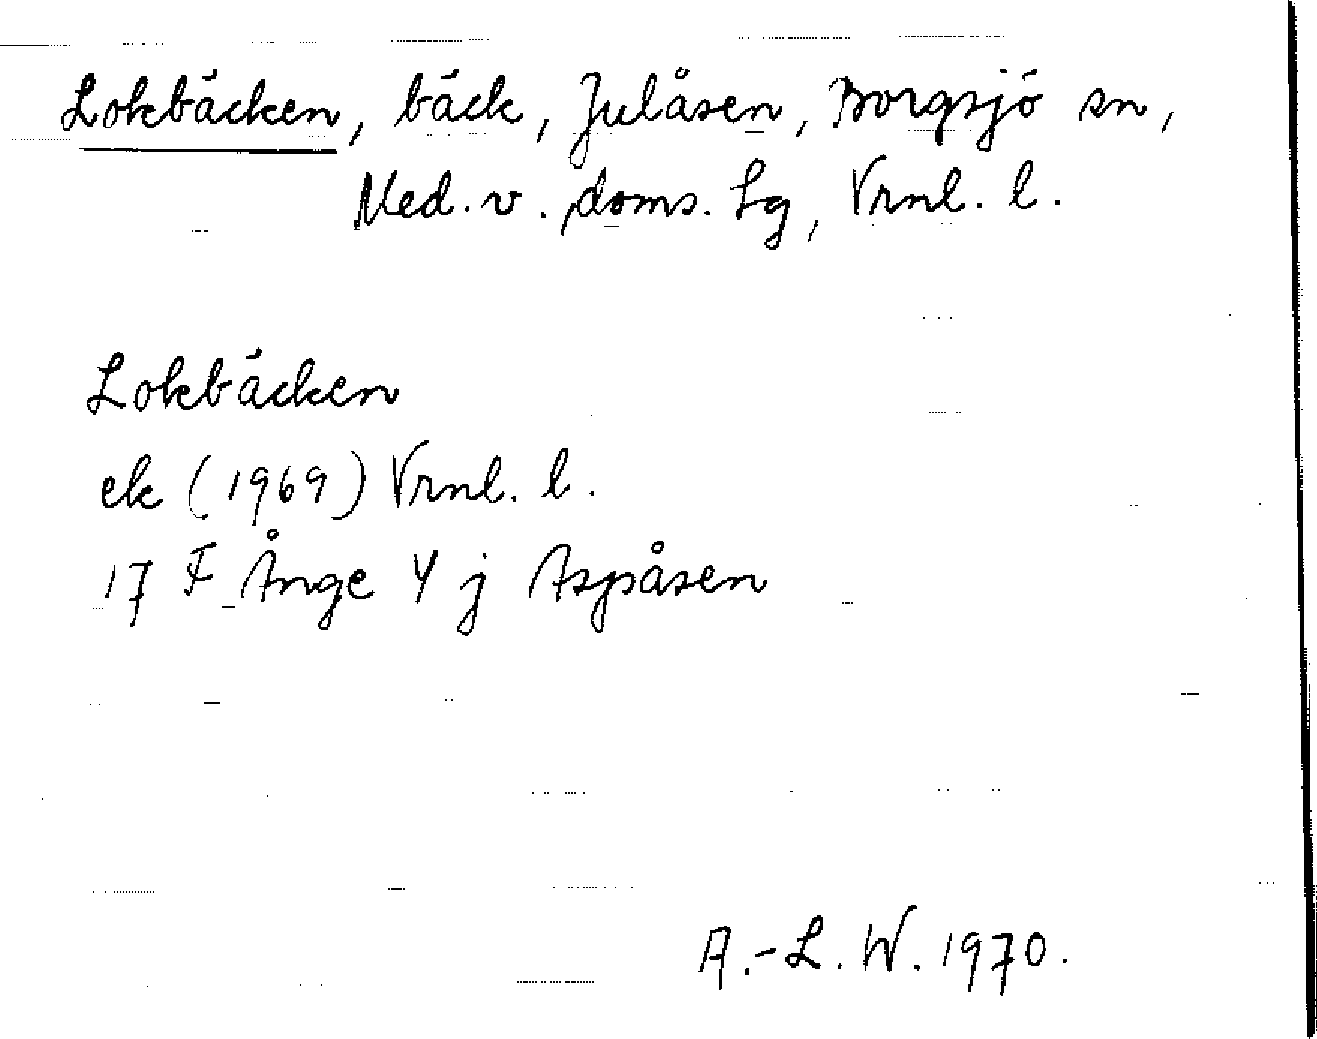 Lokbäcken, bäck, Julåsen, Borgsjö sn,
Med. v. doms. lg, Vrnl. l.
Lokbäcken
ek (1969) Vrnl. l.
17 F Ånge 4 j Aspåsen
A.-L. W. 1970.